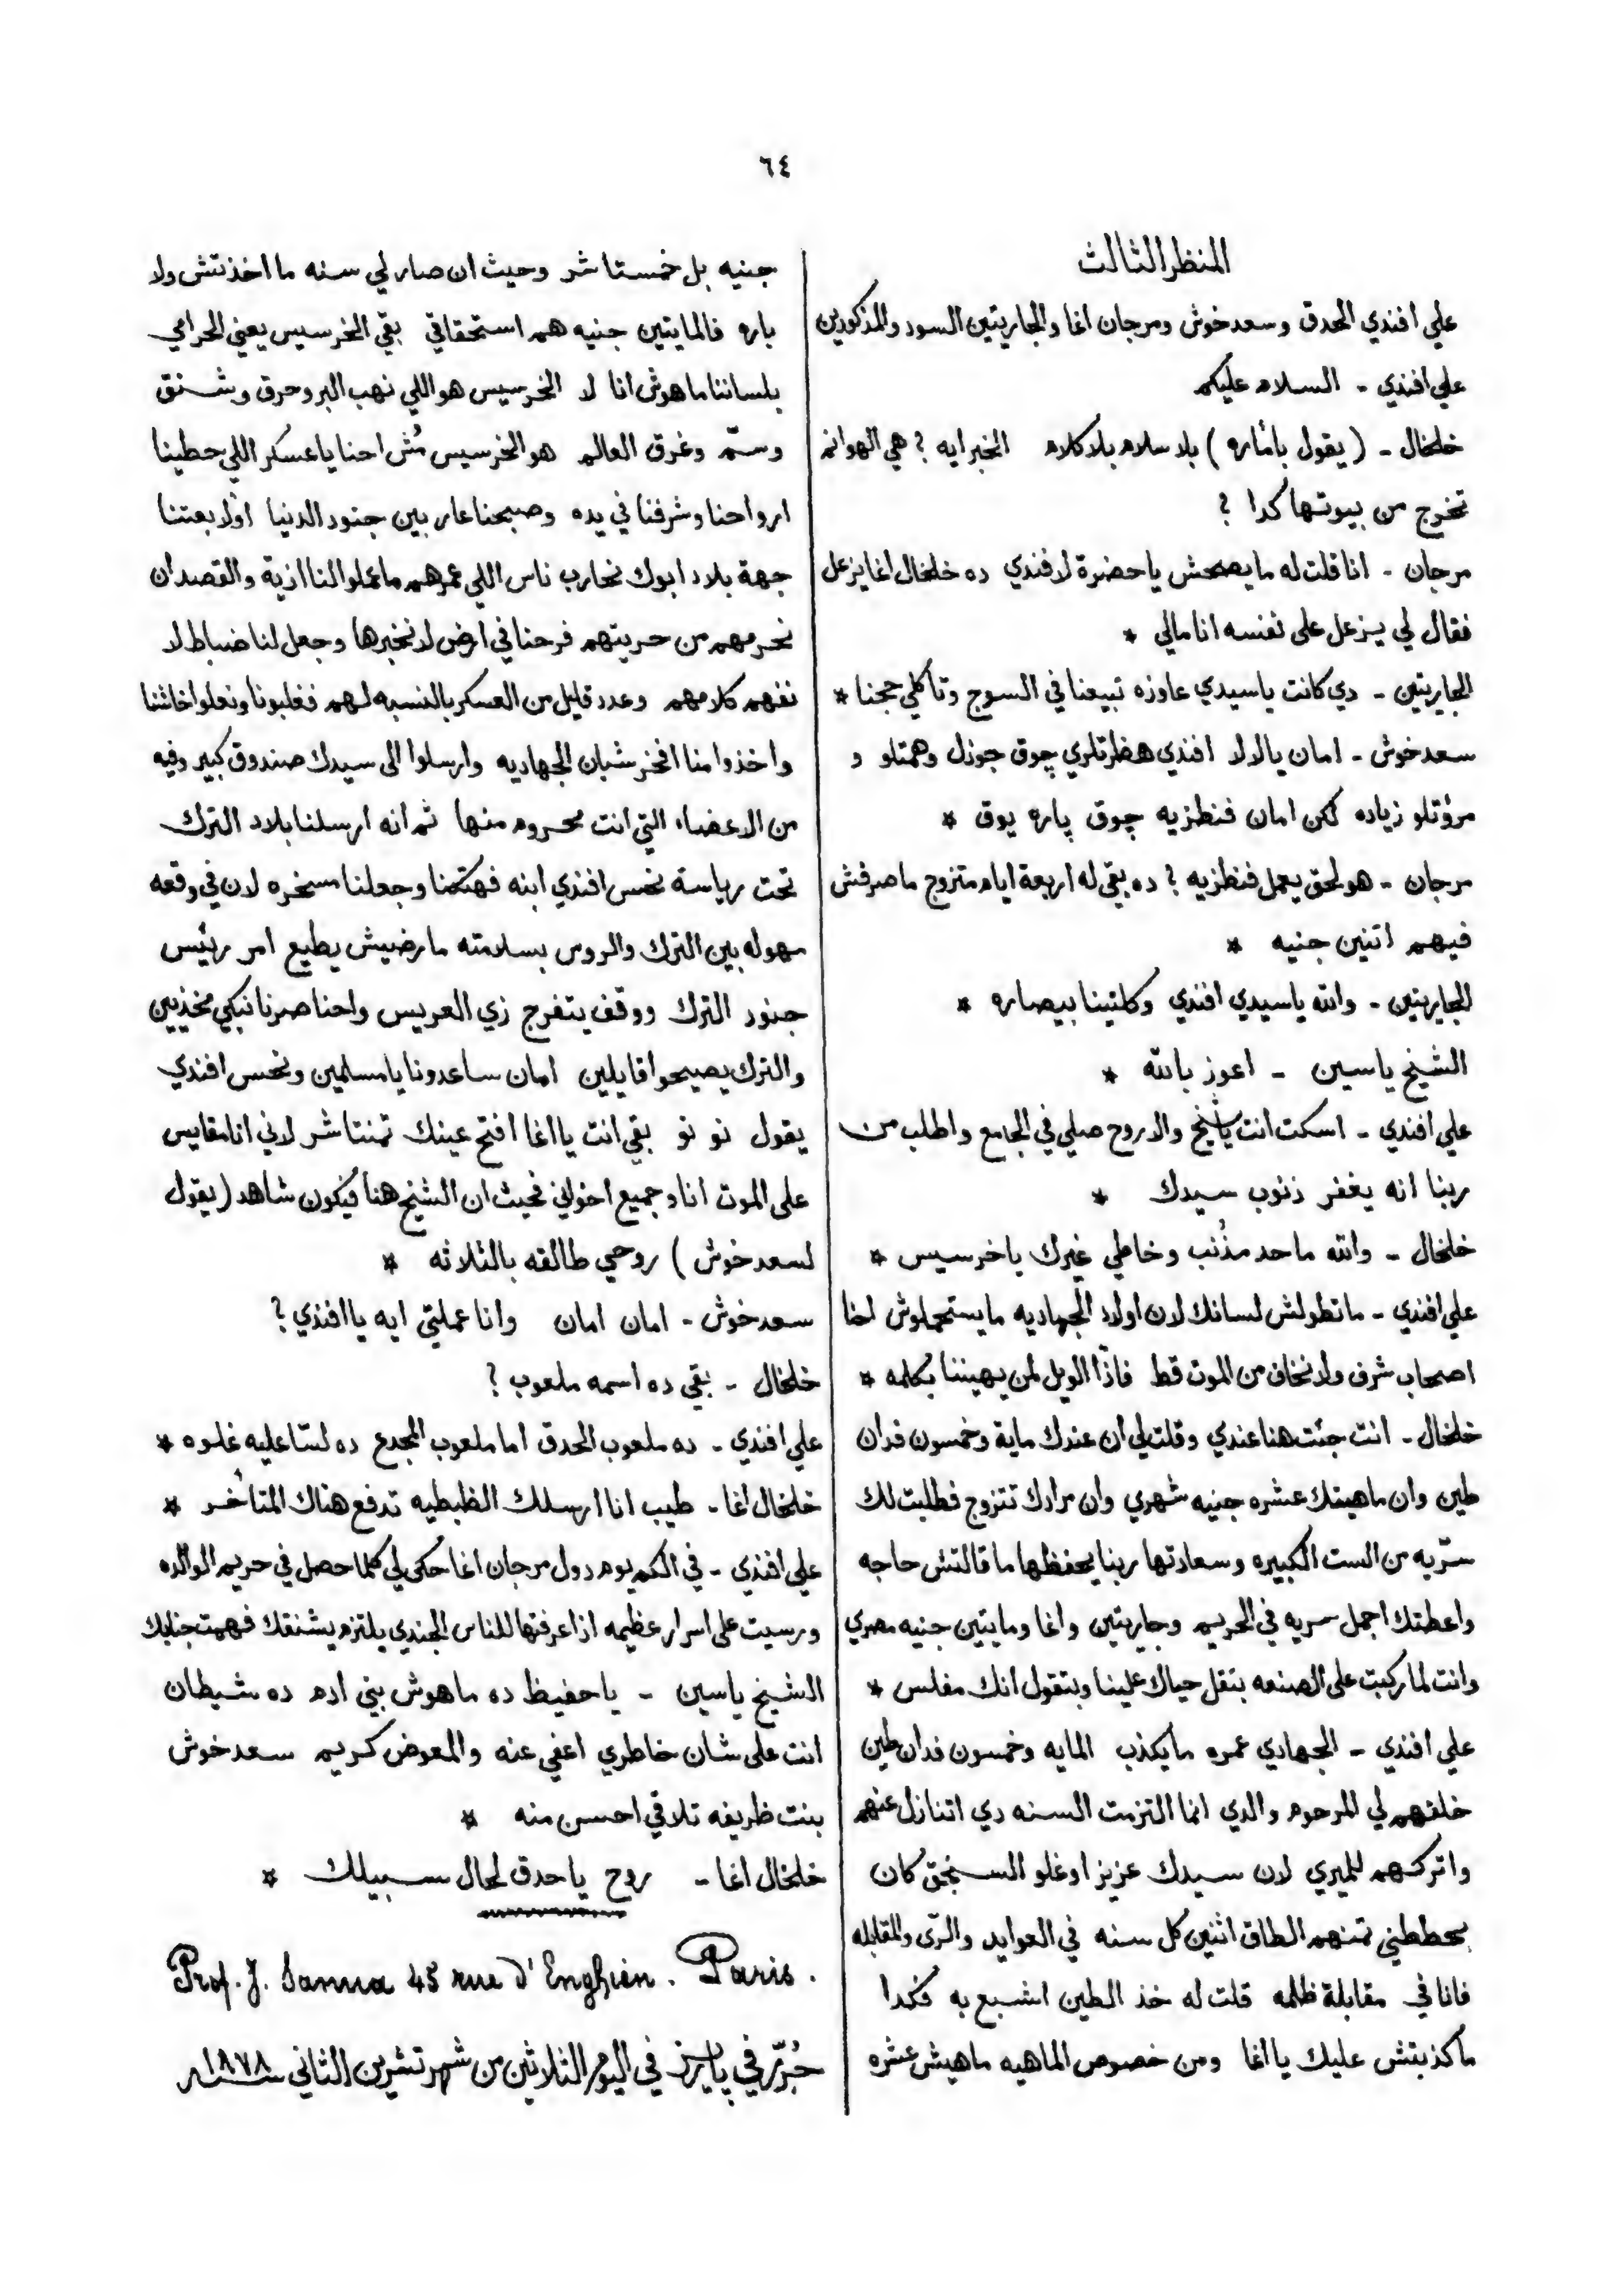 ٦٤
المنظر الثالث
علي افندي الحدق وسعدخوش ومرجان اغا والجاريتين السود والمذكورين
علي افندي - السلام عليكم
خلخال - ( يقول بأناره ) بلا سلام بلا كلام الخبر ايه ؟ هي الهوانم
تخرج من بيوتها كدا ؟
مرجان - انا قلت له ما يصحش يا حضرة لافندي ده خلخال اغا يزعل
فقال لي يزعل على نفسه انا مالي *
الجاريتين - دي كانت يا سيدي عاوزه تبيعنا في السوج وتاكلي حجنا *
سعدخوش - امان يا لالا افندي هظرتلري چوق جوزل وهمتلو و
مرؤتلو زياده لكن امان فنطزيه چوق پاره يوق *
مرجان - هو لحق يعمل فنطزيه ؟ ده بقى له اربعة ايام متزوج ما صرفش
فيهم اتنين جنيه *
الجاريتين - والله يا سيدي افندي وكلتينا بيصاره *
الشيخ ياسين - اعوز بالله *
علي افندي - اسكت انت يا شيخ والا روح صلي في الجامع واطلب من
ربنا انه يغفر ذنوب سيدك *
خلخال - والله ما حد مذُنب وخاطي غيرك يا خرسيس *
علي افندي - ما تطولش لسانك لان اولاد الجهاديه ما يستحملوش احنا
اصحاب شرف ولا نخاف من الموت قط فاذًا الويل لمن يهيننا بكلمه *
خلخال - انت جئت هنا عندي وقلت لي ان عندك ماية وخمسون فدان
طين وان ماهيتك عشره جنيه شهري وان مرادك تتزوج فطلبت لك
سرّيه من الست الكبيره وسعادتها ربنا يحفظها ما قالتش حاجه
واعطتك اجمل سريه في الحريم وجاريتين واغا ومايتين جنيه مصري
وانت لما ركبت على الصنعه بتقل حياك علينا وبتقول انك مفلس *
علي افندي - الجهادي عمره ما يكذب المايه وخمسون فدان طين
خلفهم لي المرحوم والدي انما التزمت السنه دي اتنازل عنهم
واتركهم للميري لان سيدك عزيز اوغلو السنجق كان
يحططني تمنهم الطاق اثنين كل سنه في العوايد والرّى والمقابله
فانا في مقابلة ظلمه قلت له خذ الطين اشبع به فكدا
ما كذبتش عليك يا اغا ومن خصوص الماهيه ماهيش عشره
جنيه بل خمستاشر وحيث ان صار لي سنه ما اخذتش ولا
باره فالمايتين جنيه هم استحقاقي بقي الخرسيس يعني الحرامي
بلساننا ما هوش انا لا الخرسيس هو اللي نهب البر وحرق وشنق
وسمّ وغرق العالم هو الخرسيس مُش احنا يا عسكر اللي حطينا
ارواحنا وشرفنا في يده وصبحنا عار بين جنود الدنيا اولا بعتنا
جهة بلاد ابوك نحارب ناس اللي عمرهم ما عملوا لنا ازية والقصد ان
نحرمهم من حريتهم فرحنا في ارض لا نخبرها وجعل لنا ضباط لا
نفهم كلامهم وعدد قليل من العسكر بالنسبه لهم فغلبونا ونعلوا خاشنا
واخذوا منا افخر شبان الجهاديه وارسلوا الى سيدك صندوق كبير وفيه
من الاعضاء التي انت محروم منها ثم انه ارسلنا بلاد الترك
تحت رياسة نحس افندي ابنه فهتكنا وجعلنا مسخره لان في وقعه
مهوله بين الترك والروس بسلامته ما رضيش يطيع امر رئيس
جنود الترك ووقف يتفرج زي العريس واحنا صرنا نبكي مخذيين
والترك يصيحوا قايلين امان ساعدونا يا مسلمين ونحس افندي
يقول نو نو بقي انت يا اغا افتح عينك تمنتاشر لاني انا مقايس
على الموت انا وجميع اخواني فحيث ان الشيخ هنا فيكون شاهد ( يقول
لسعدخوش ) روحي طالقه بالثلاثه *
سعدخوش - امان امان وانا عملتي ايه يا افندي ؟
خلخال - بقي ده اسمه ملعوب ؟
علي افندي - ده ملعوب الحدق اما ملعوب المجدع ده لسّا عليه غلوه *
خلخال اغا - طيب انا ارسلك الظبطيه تدفع هناك المتأخر *
علي افندي - في الكم يوم دول مرجان اغا حكى لي كلما حصل في حريم الوالده
ورسيت على اسرار عظيمه اذا عرفتها للناس الجندي يلتزم يشنقك فهمت جنابك
الشيخ ياسين - يا حفيظ ده ما هوش بني ادم ده شيطان
انت على شان خاطري اعفي عنه والمعوض كريم سعدخوش
بنت ظريفه تلاقي احسن منه *
خلخال اغا - روح يا حدق لحال سبيلك *
Prof. J. Sanua 45 rue d'Enghien. Paris.
حُرّر في پاريز في اليوم الثلاثين من شهر تشرين الثاني سنة ١٨٧٨